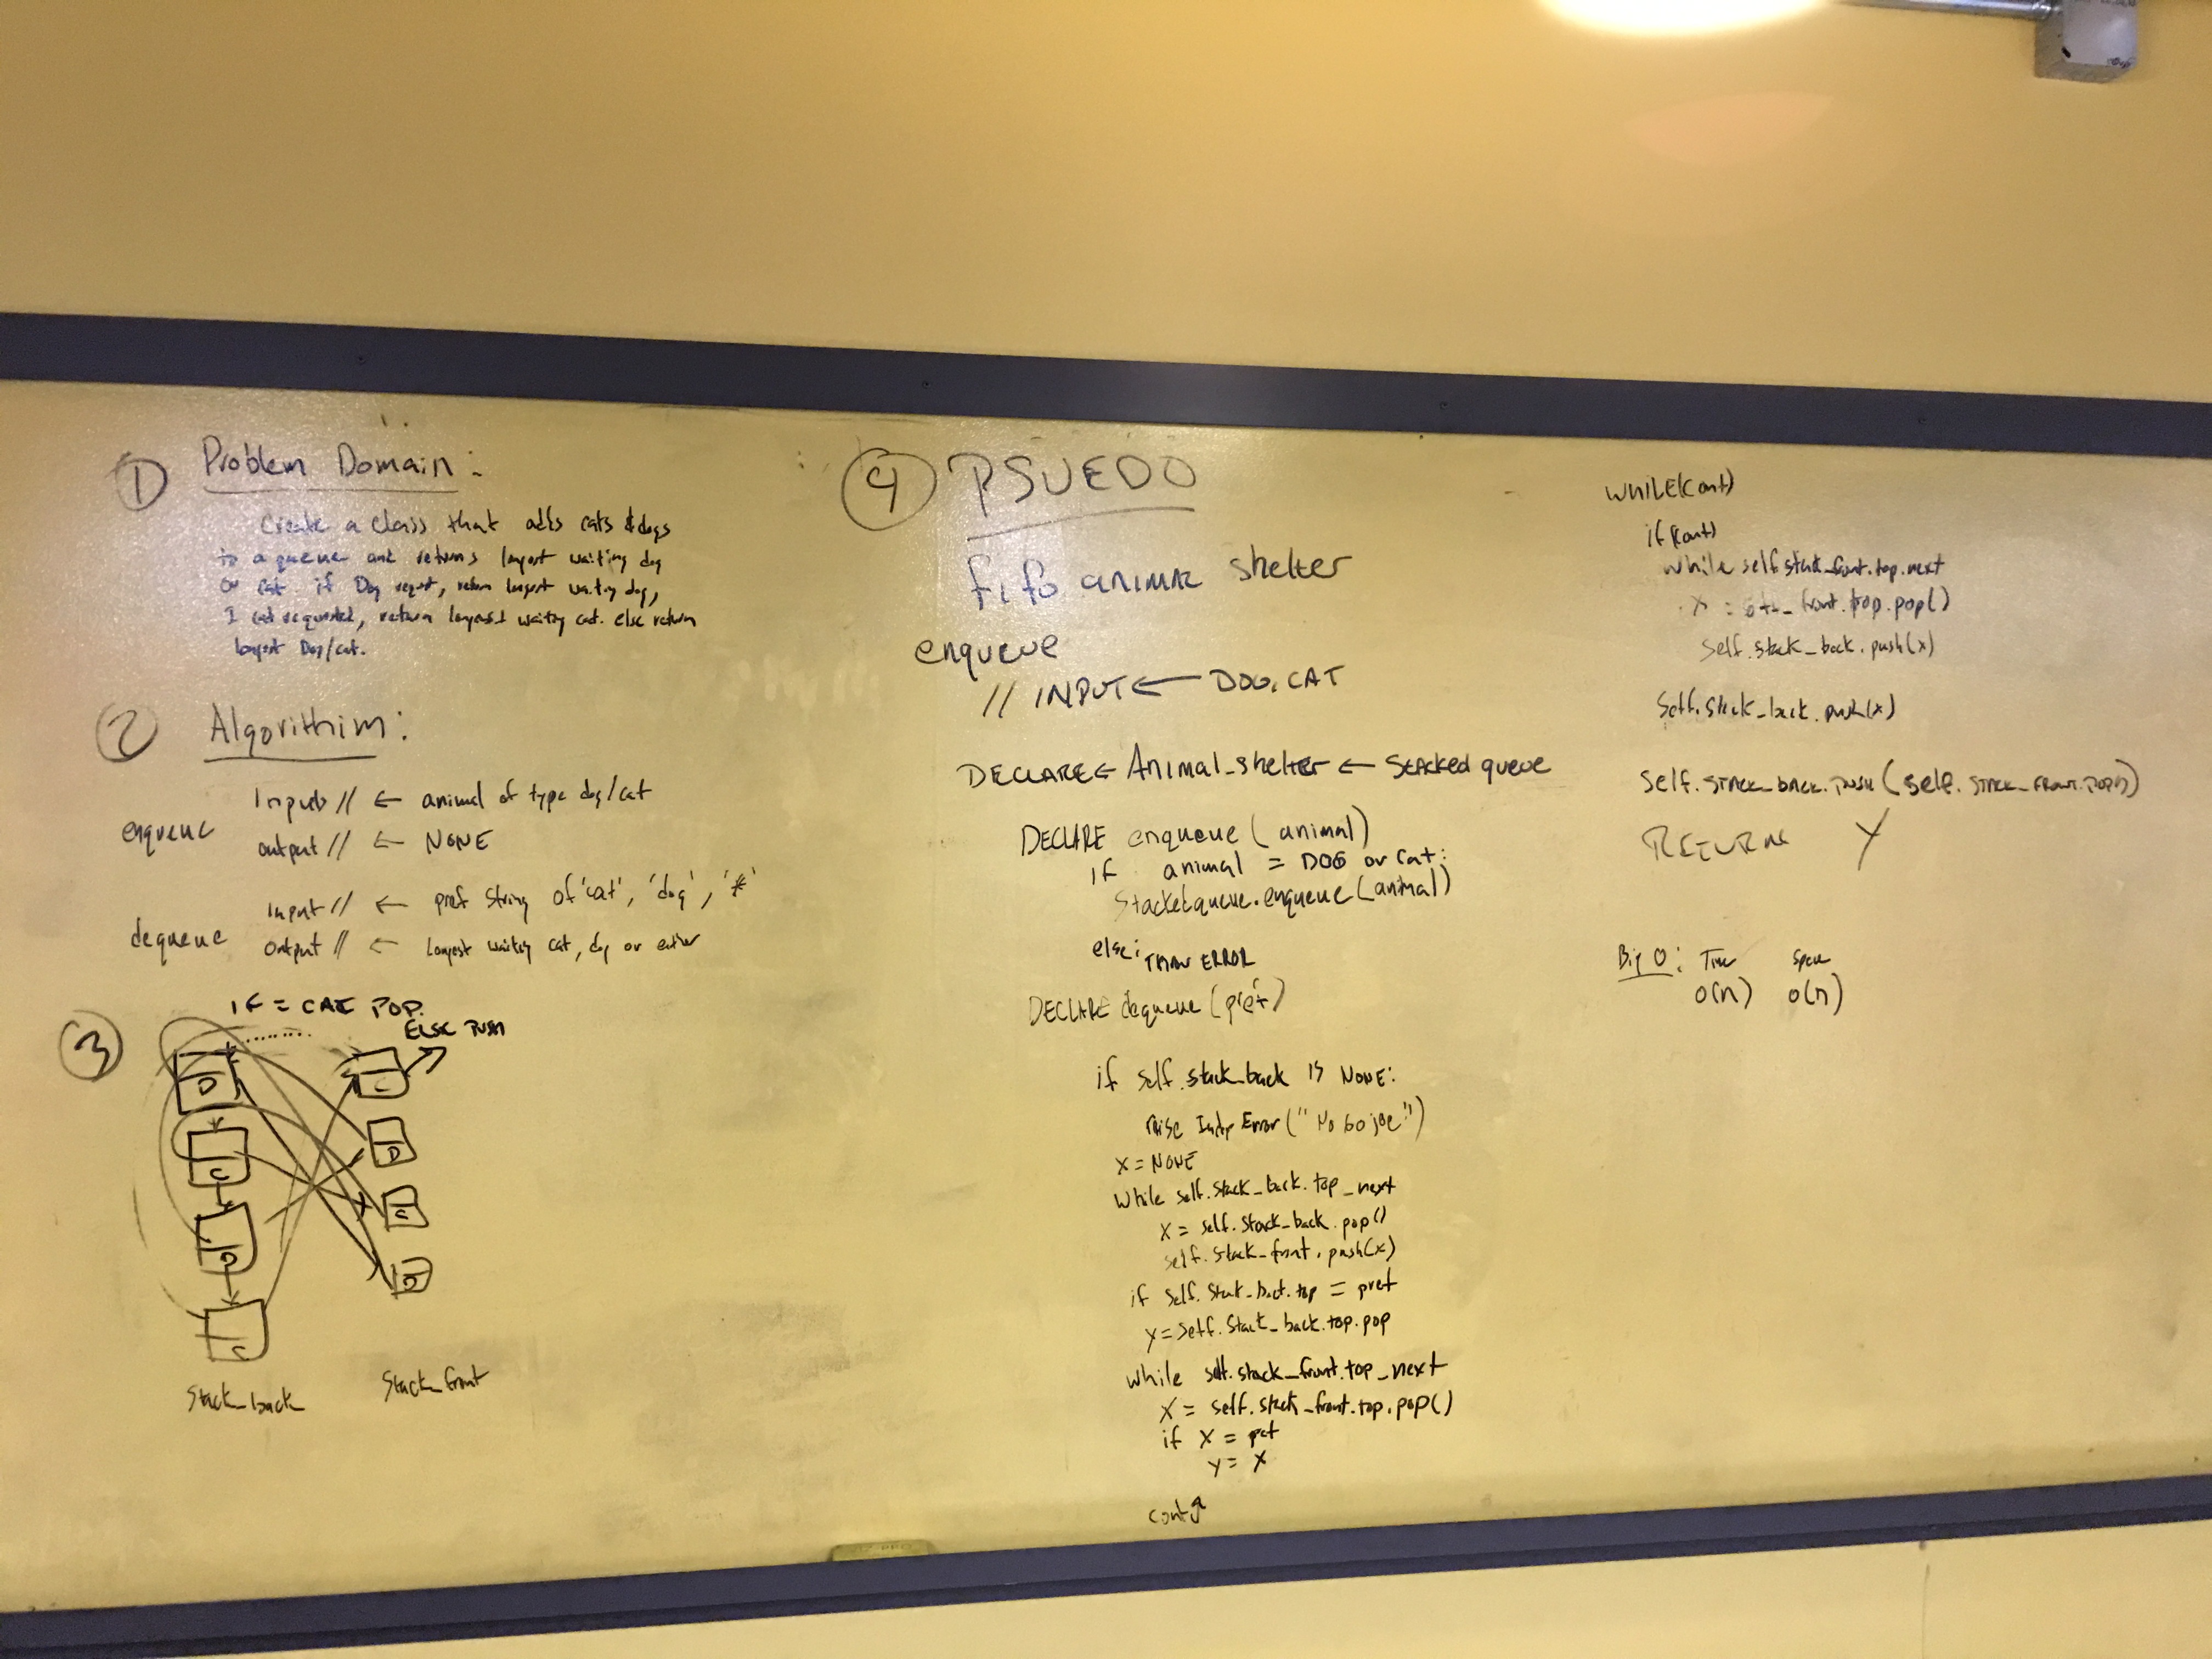 ① Problem Domain:
Create a class that adds cats & dogs
to a queue and returns longest waiting dog
or cat. if Dog request, return longest waiting dog,
I cat requested, return longest waiting cat. else return
longest Dog/cat.
② Algorithim:
enqueue
Inputs // ← animal of type dog/cat
output // ← NONE
dequeue
Input // ← pref string of 'cat', 'dog', '*'
output // ← longest waiting cat, dog or either
③
IF = CAT POP.
ELSE PUSH
D
C
D
C
C
D
C
D
Stack_back
Stack_front
④ PSUEDO
fifo animal shelter
enqueue
// INPUT ← DOG, CAT
DECLARE ← Animal_shelter ← Stacked queue
DECLARE enqueue (animal)
if animal = DOG or cat:
Stackedqueue.enqueue(animal)
else: THROW ERROR
DECLARE dequeue (pref)
if self.stack_back is NONE:
raise Error("No bo joe")
X = NONE
While self.stack_back.top_next
X = self.stack_back.pop()
self.stack_front.push(x)
if self.stack_back.top = pref
y = self.stack_back.top.pop
while self.stack_front.top_next
X = self.stack_front.top.pop()
if X =
y = X
WHILE(cont)
if(cont)
while self.stack_front.top.next
X = front.top.pop()
self.stack_back.push(x)
self.stack_back.push(x)
self.stack_back.push(self.stack_front.pop())
RETURN Y
Big O: Time Space
O(n) O(n)